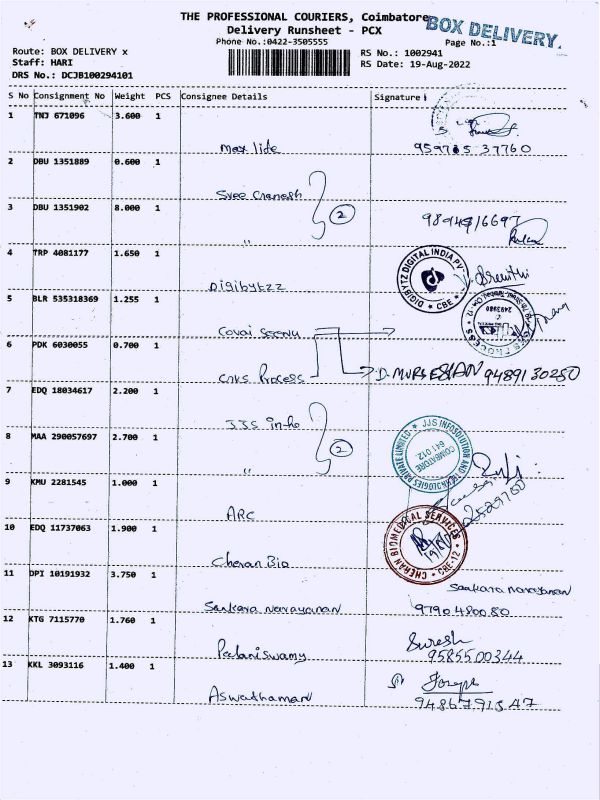 THE PROFESSIONAL COURIERS, Coimbatore
BOX DELIVERY.
Delivery Runsheet - PCX
Phone No.:0422-3505555
Page No.:1
Route: BOX DELIVERY x
RS No.: 1002941
Staff: HARI
RS Date: 19-Aug-2022
DRS No.: DCJB100294101
S No Consignment No Weight PCS Consignee Details Signature
1 TNJ 671096 3.600 1
Max life 37760
2 DBU 1351889 0.600 1
Sree Ganesh
2
3 DBU 1351902 8.000 1
"
4 TRP 4081177 1.650 1
Digibytzz
DIGIBYTZ DIGITAL INDIA PV
CBE
5 BLR 535318369 1.255 1
Covai
6 PDK 6030055 0.700 1
Process
D. MURGESHAN 9489130250
7 EDQ 18034617 2.200 1
JJS in-fo
2
8 MAA 290057697 2.700 1
"
JJS INFOSOLUTION AND TECHNOLOGIES PRIVATE LIMITED
COIMBATORE
641 012.
9 KMU 2281545 1.000 1
ARC
10 EDQ 11737063 1.900 1
Cheran Bio
CHERAN BIOMEDICAL SERVICES
CBE-12
11 DPI 10191932 3.750 1
Sankara narayanan
Sankara narayanan
9790480080
12 KTG 7115770 1.760 1
Suresh
Palaniswamy 9585500344
13 KKL 3093116 1.400 1
Joseph
Aswathaman